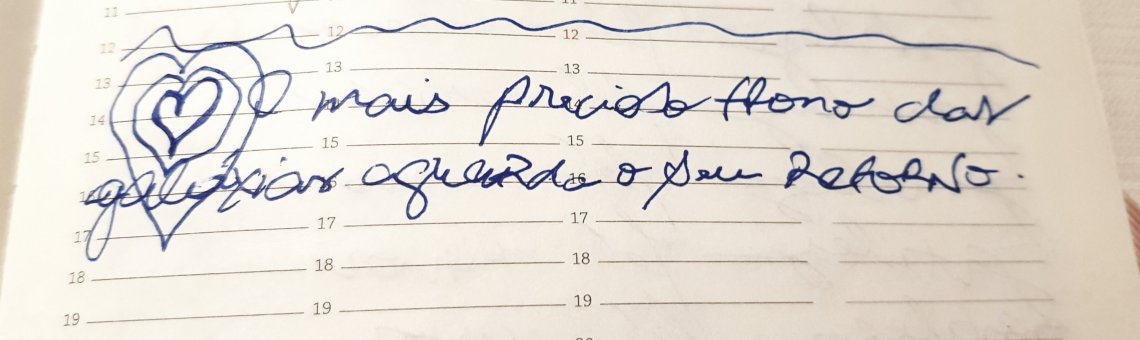 11 11
12 12 12
13 13 13
14 O mais precioso trono das
15 15 15
16 16 galáxias aguarda o seu RetoRNo.
17 17 17
18 18 18
19 19 19